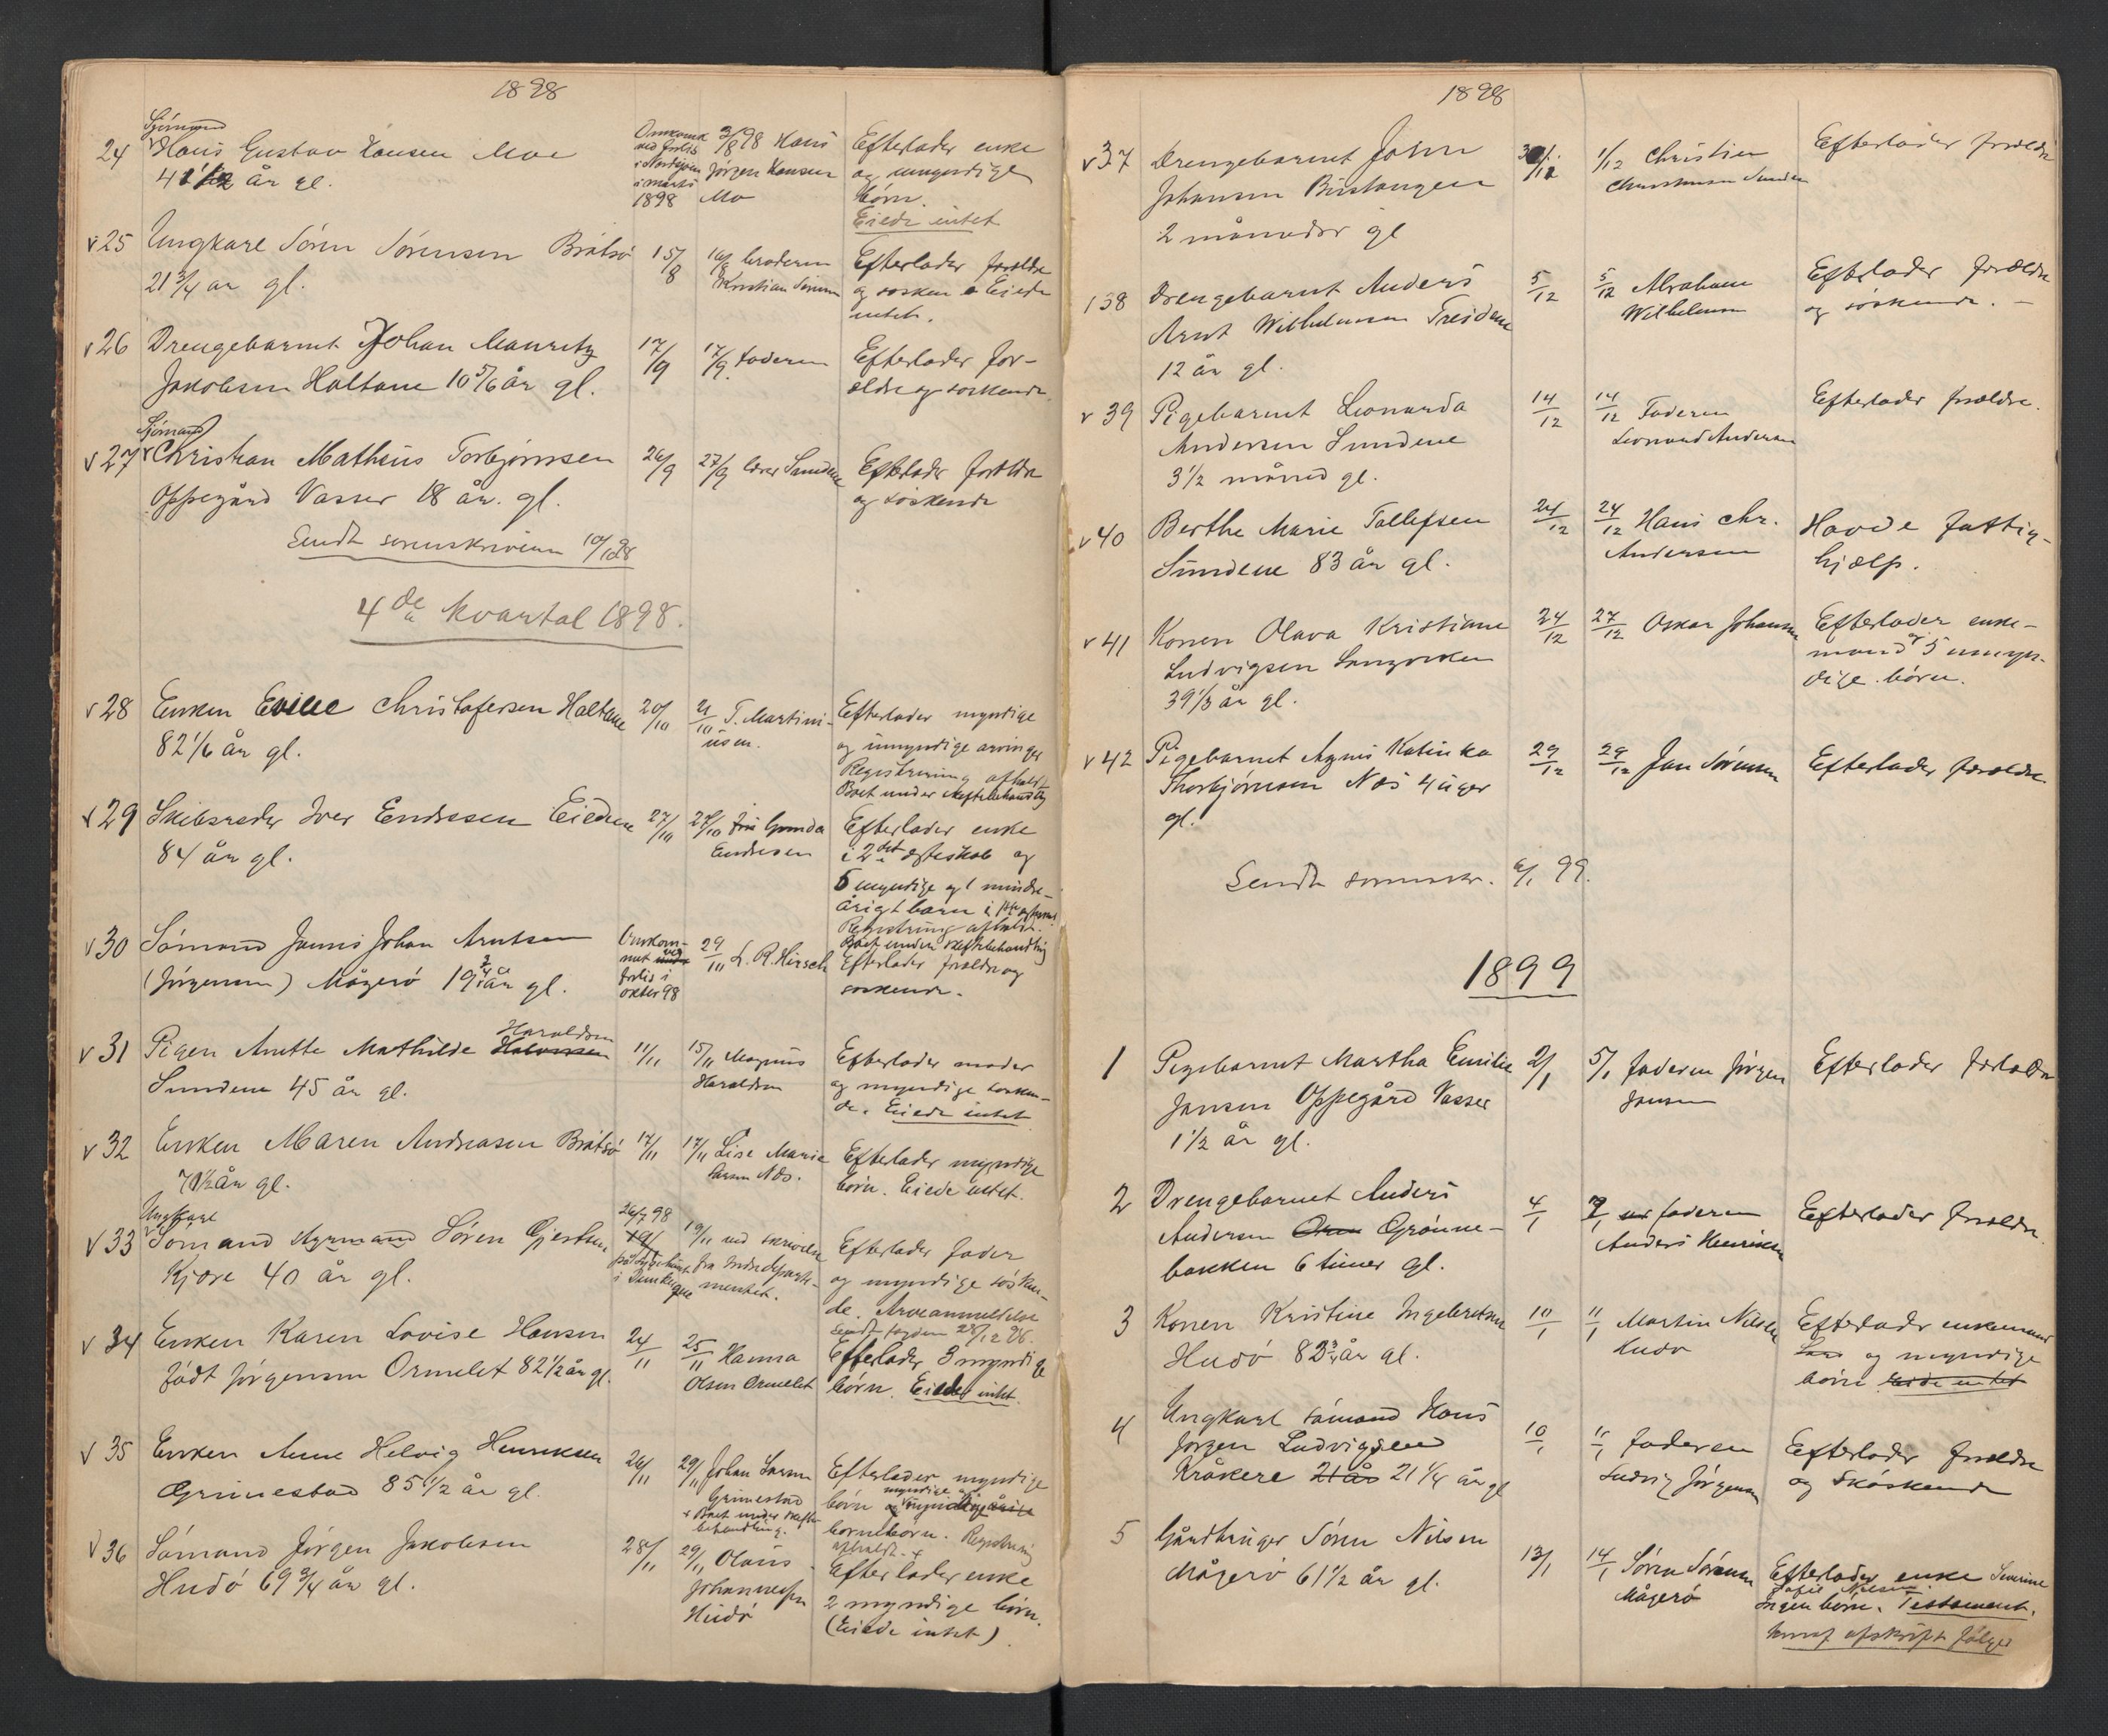 1898
24 Sjömand
Hans Gustav Hansen Moe
41 år gl.
Omkommet ved forlis i Nordsjöen i marts 1898
3/8 98 Hans Jörgen Hansen Mo
Efterlader enke
og umyndige
börn.
Eiede intet
v 25 Ungkarl Sören Sörensen Bråtsö
21 3/4 år gl.
15/8
16/8 broderen
Kristian
Efterlader forældre
og sösken Eiede
intet.
v 26 Drengebarnet Johan Mauritz
Jakobsen Haltane 10 5/6 år gl.
17/9
17/9. faderen
Efterlader for-
ældre og söskende.
v 27 Sjömand
Christian Mathius Torbjörnsen
Oppegård Vasser 18 år. gl.
26/9
27/9 lærer Sundene
Efterlader forældre
og söskende
Sendt sorenskriveren 10/10 98
4de kvartal 1898.
v 28 Enken Eville Christofersen Haltane
82 1/6 år gl.
20/10
21/10 T. Martini-
usen.
Efterlader myndige
og umyndige arvinger
Registrering afholdt
Boet under skiftebehandling
v 29 Skibsreder Iver Endresen Eidene
84 år gl.
27/10
27/10 fru Gunda
Endresen
Efterlader enke
i 2det ægteskab og
5 myndige og 1 mindre-
årigt barn i 1ste ægtesk.
Registrering afholdt.
Boet under skiftebehandling
v 30 Sömand Johan Arntsen
(Jörgensen) Mågerö 19 3/4 år gl.
Omkom-
met ved
forlis i
oktbr 98
29/11 L. R. Hirsch
Efterlader forældre og
söskende.
v 31 Pigen Anette Mathilde Haraldsen
Sundene 45 år gl.
11/11
15/11 Magnus
Haraldsen
Efterlader moder
og myndige sösken-
de. Eiede intet
v 32 Enken Maren Andreasen Bråtsö
70 1/2 år gl.
17/11
17/11 Lise Marie
Larsen Næs.
Efterlader myndige
börn. Eiede intet.
v 33 Ungkarl
Sömand Sören Gjertsen
Kjöre 40 år gl.
26/7 98
på sygehuset
i Dunkerque
19/11 ved skrivelse
fra Indredeparte-
mentet.
Efterlader fader
og myndige sösken-
de. Arveanmeldelse
Sendt fogden 28/12 98.
v 34 Enken Karen Lovise Hansen
födt Jörgensen Ormelet 82 1/2 år gl.
24/11
25/11 Hanna
Olsen Ormelet
Efterlader 3 myndige
börn. Eiede intet.
v 35 Enken Anne Helvig Henriksen
Grimestad 85 1/2 år gl.
26/11
29/11 Johan Larsen
Grimestad
+ Boet under skifte-
behandling.
Efterlader myndige
börn myndige og
umyndige
börnebörn. Registrering
afholdt. +
v 36 Sömand Jörgen Jakobsen
Hudö 69 3/4 år gl.
28/11
29/11 Olaus
Johannessen
Hudö
Efterlader enke
2 myndige börn.
(Eiede intet).
1898
v 37 Drengebarnet Johan
Johansen Bustangen
2 måneder gl
1/12 Christian
Christensen Sundene
Efterlader forældre
v 38 Drengebarnet Anders
Arnt Wilhelmsen Treidene
12 år gl.
5/12
5/12 Abraham
Wilhelmsen
Efterlader forældre
og söskende. –
v 39 Pigebarnet Leonarda
Andersen Sundene
3 1/2 måned gl.
14/12
14/12 Faderen
Leonard Andersen
Efterlader forældre.
v 40 Berthe Marie Tollefsen
Sundene 83 år gl.
24/12
24/12 Hans Chr.
Andersen
Havde fattig-
hjælp.
v 41 Konen Olava Kristiane
Ludvigsen Langviken
39 1/3 år gl.
24/12
27/12 Oskar Johansen
Efterlader enke-
mand og 5 umyn-
dige börn.
v 42 Pigebarnet Agnes Katinka
Thorbjörnsen Næs 4 uger
gl.
29/12
29/12 Jan Sörensen
Efterlader forældre.
Sendt sorenskr. 6/1 99.
1899
1 Pigebarnet Martha Emilie
Jansen Oppegård Vasser
1 1/2 år gl.
2/1
5/1 faderen Jörgen
Jansen
Efterlader forældre
2 Drengebarnet Anders
Andersen Grönne-
bakken 6 timer gl.
4/1
7/1 faderen
Anders Henriksen
Efterlader forældre.
3 Konen Kristine Ingebretsen
Hudö 82 3/4 år gl.
10/1
11/1 Martin Nilsen
Hudö
Efterlader enkemand
og myndige
börn Eiede intet
4 Ungkarl sömand Hans
Jörgen Ludvigsen
Kråkere 21 år 21 1/4 år gl
10/1
11/1 faderen
Ludvig Jörgensen
Efterlader forældre
og söskende
5 Gårdbruger Sören Nilsen
Mågerö 61 1/2 år gl.
13/1
14/1 Sören Sörensen
Mågerö
Efterlader enke Severine
Sofie Nilsen.
Ingen börn. Testament,
hvoraf afskrift fölger